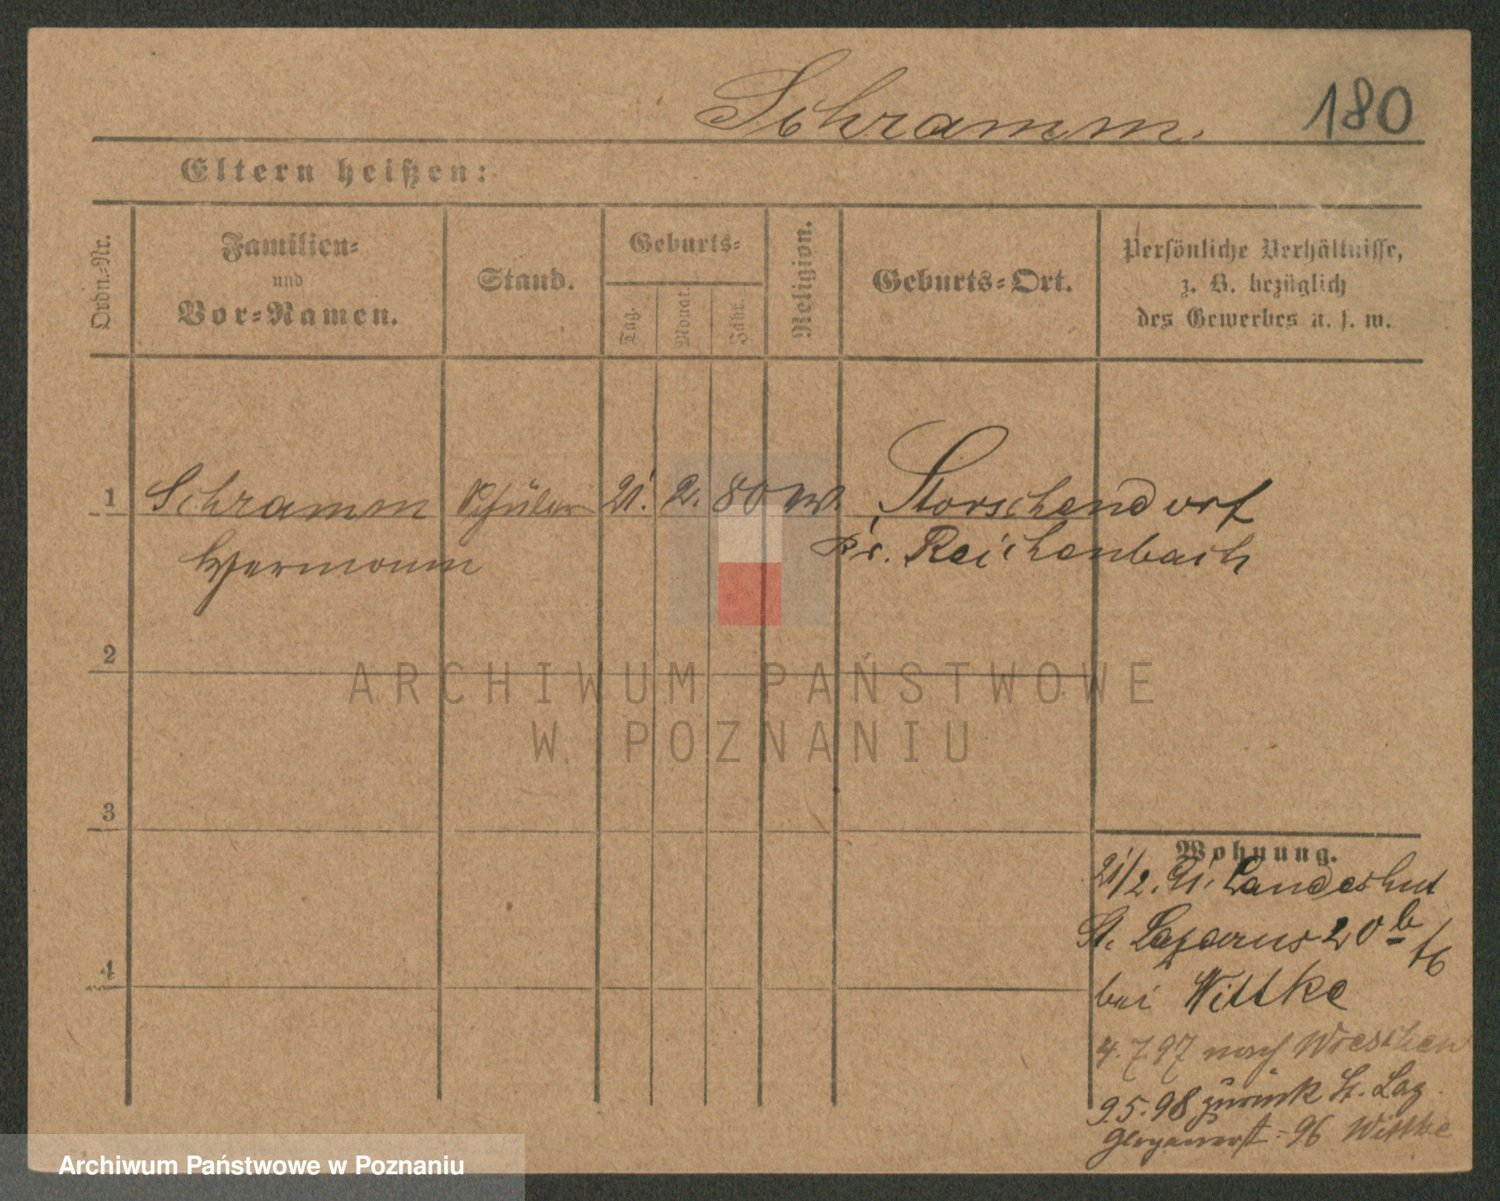 Schramm.
180
Eltern heißen:
Ordn.-Nr.
Familien-
und
Vor-Namen.
Stand.
Geburts-
Tag.
Monat.
Jahr.
Religion.
Geburts-Ort.
Persönliche Verhältnisse,
z. B. bezüglich
des Gewerbes u. s. w.
1 Schramm Schüler 21. 2. 80 ev. Storschendorf
Hermann Kr. Reichenbach
2
3
4
Wohnung.
21/2. 91. Landeshut
St. Lazarus 20 b
bei Wittke
4. 7 97 nach Wreschen
9. 5. 98 zurück St. Laz.
Glogauerst. 96 Wittke
ARCHIWUM PAŃSTWOWE
W POZNANIU
Archiwum Państwowe w Poznaniu